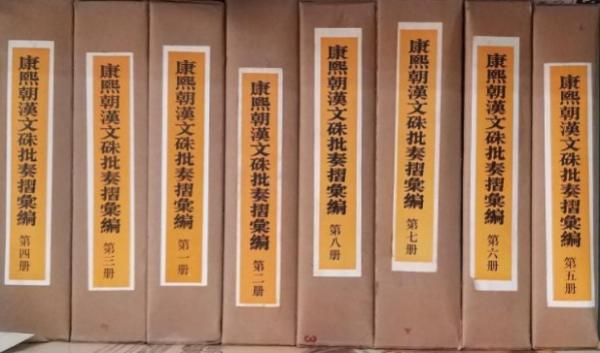 康熙朝漢文硃批奏摺彙編 第四册
康熙朝漢文硃批奏摺彙編 第三册
康熙朝漢文硃批奏摺彙編 第一册
康熙朝漢文硃批奏摺彙編 第二册
康熙朝漢文硃批奏摺彙編 第八册
康熙朝漢文硃批奏摺彙編 第七册
康熙朝漢文硃批奏摺彙編 第六册
康熙朝漢文硃批奏摺彙編 第五册